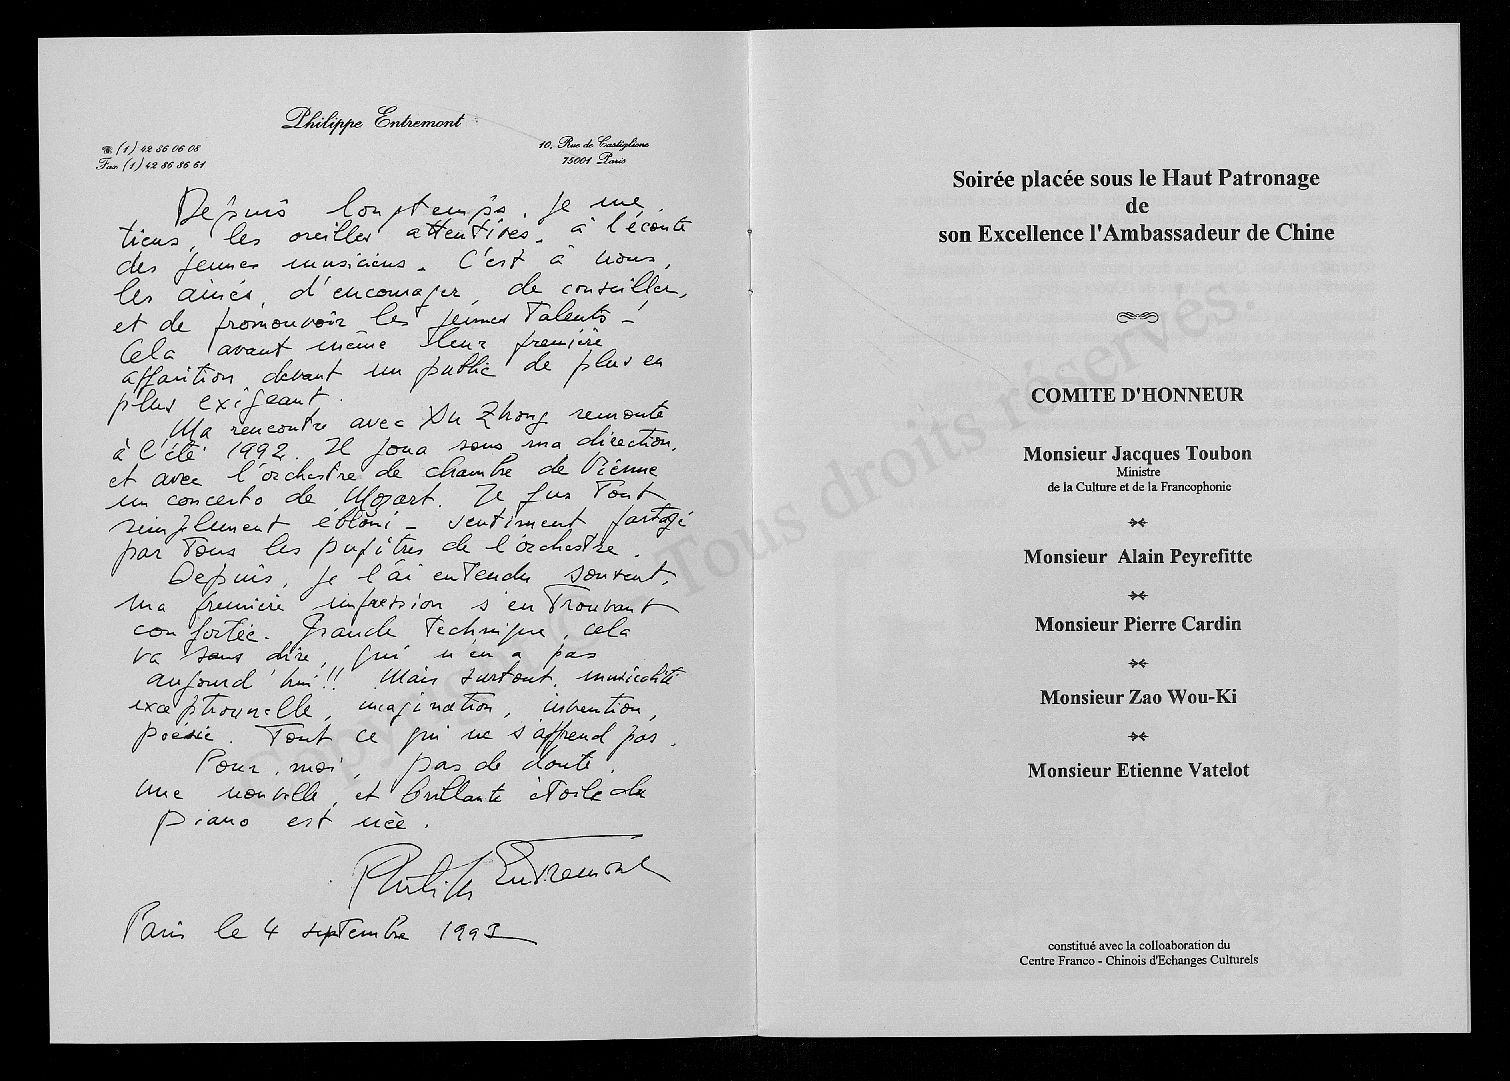 Philippe Entremont
☎ (1) 42 86 06 08
Fax (1) 42 86 86 61
10, Rue de Castiglione
75001 Paris
Depuis longtemps, je me
tiens, les oreilles attentives, à l'écoute
des jeunes musiciens. C'est à nous,
les ainés, d'encourager, de conseiller,
et de promouvoir les jeunes talents -
Cela avant même leur première
apparition devant un public de plus en
plus exigeant.
Ma rencontre avec Xu Zhong remonte
à l'été 1992. Il joua sous ma direction,
et avec l'orchestre de chambre de Vienne
un concerto de Mozart. Je fus tout
simplement ébloui - sentiment partagé
par tous les pupitres de l'orchestre.
Depuis, je l'ai entendu souvent,
ma première impression s'en trouvant
confortée. Grande technique, cela
va sans dire, qui n'en a pas
aujourd'hui!! Mais surtout, musicalité
exceptionnelle, imagination, invention,
poésie. Tout ce qui ne s'apprend pas.
Pour moi, pas de doute,
une nouvelle et brillante étoile du
piano est née.
Philippe Entremont
Paris le 4 septembre 1993
Soirée placée sous le Haut Patronage
de
son Excellence l'Ambassadeur de Chine
COMITE D'HONNEUR
Monsieur Jacques Toubon
Ministre
de la Culture et de la Francophonie
Monsieur Alain Peyrefitte
Monsieur Pierre Cardin
Monsieur Zao Wou-Ki
Monsieur Etienne Vatelot
constitué avec la colloaboration du
Centre Franco - Chinois d'Echanges Culturels
Copyright © - Tous droits réservés.